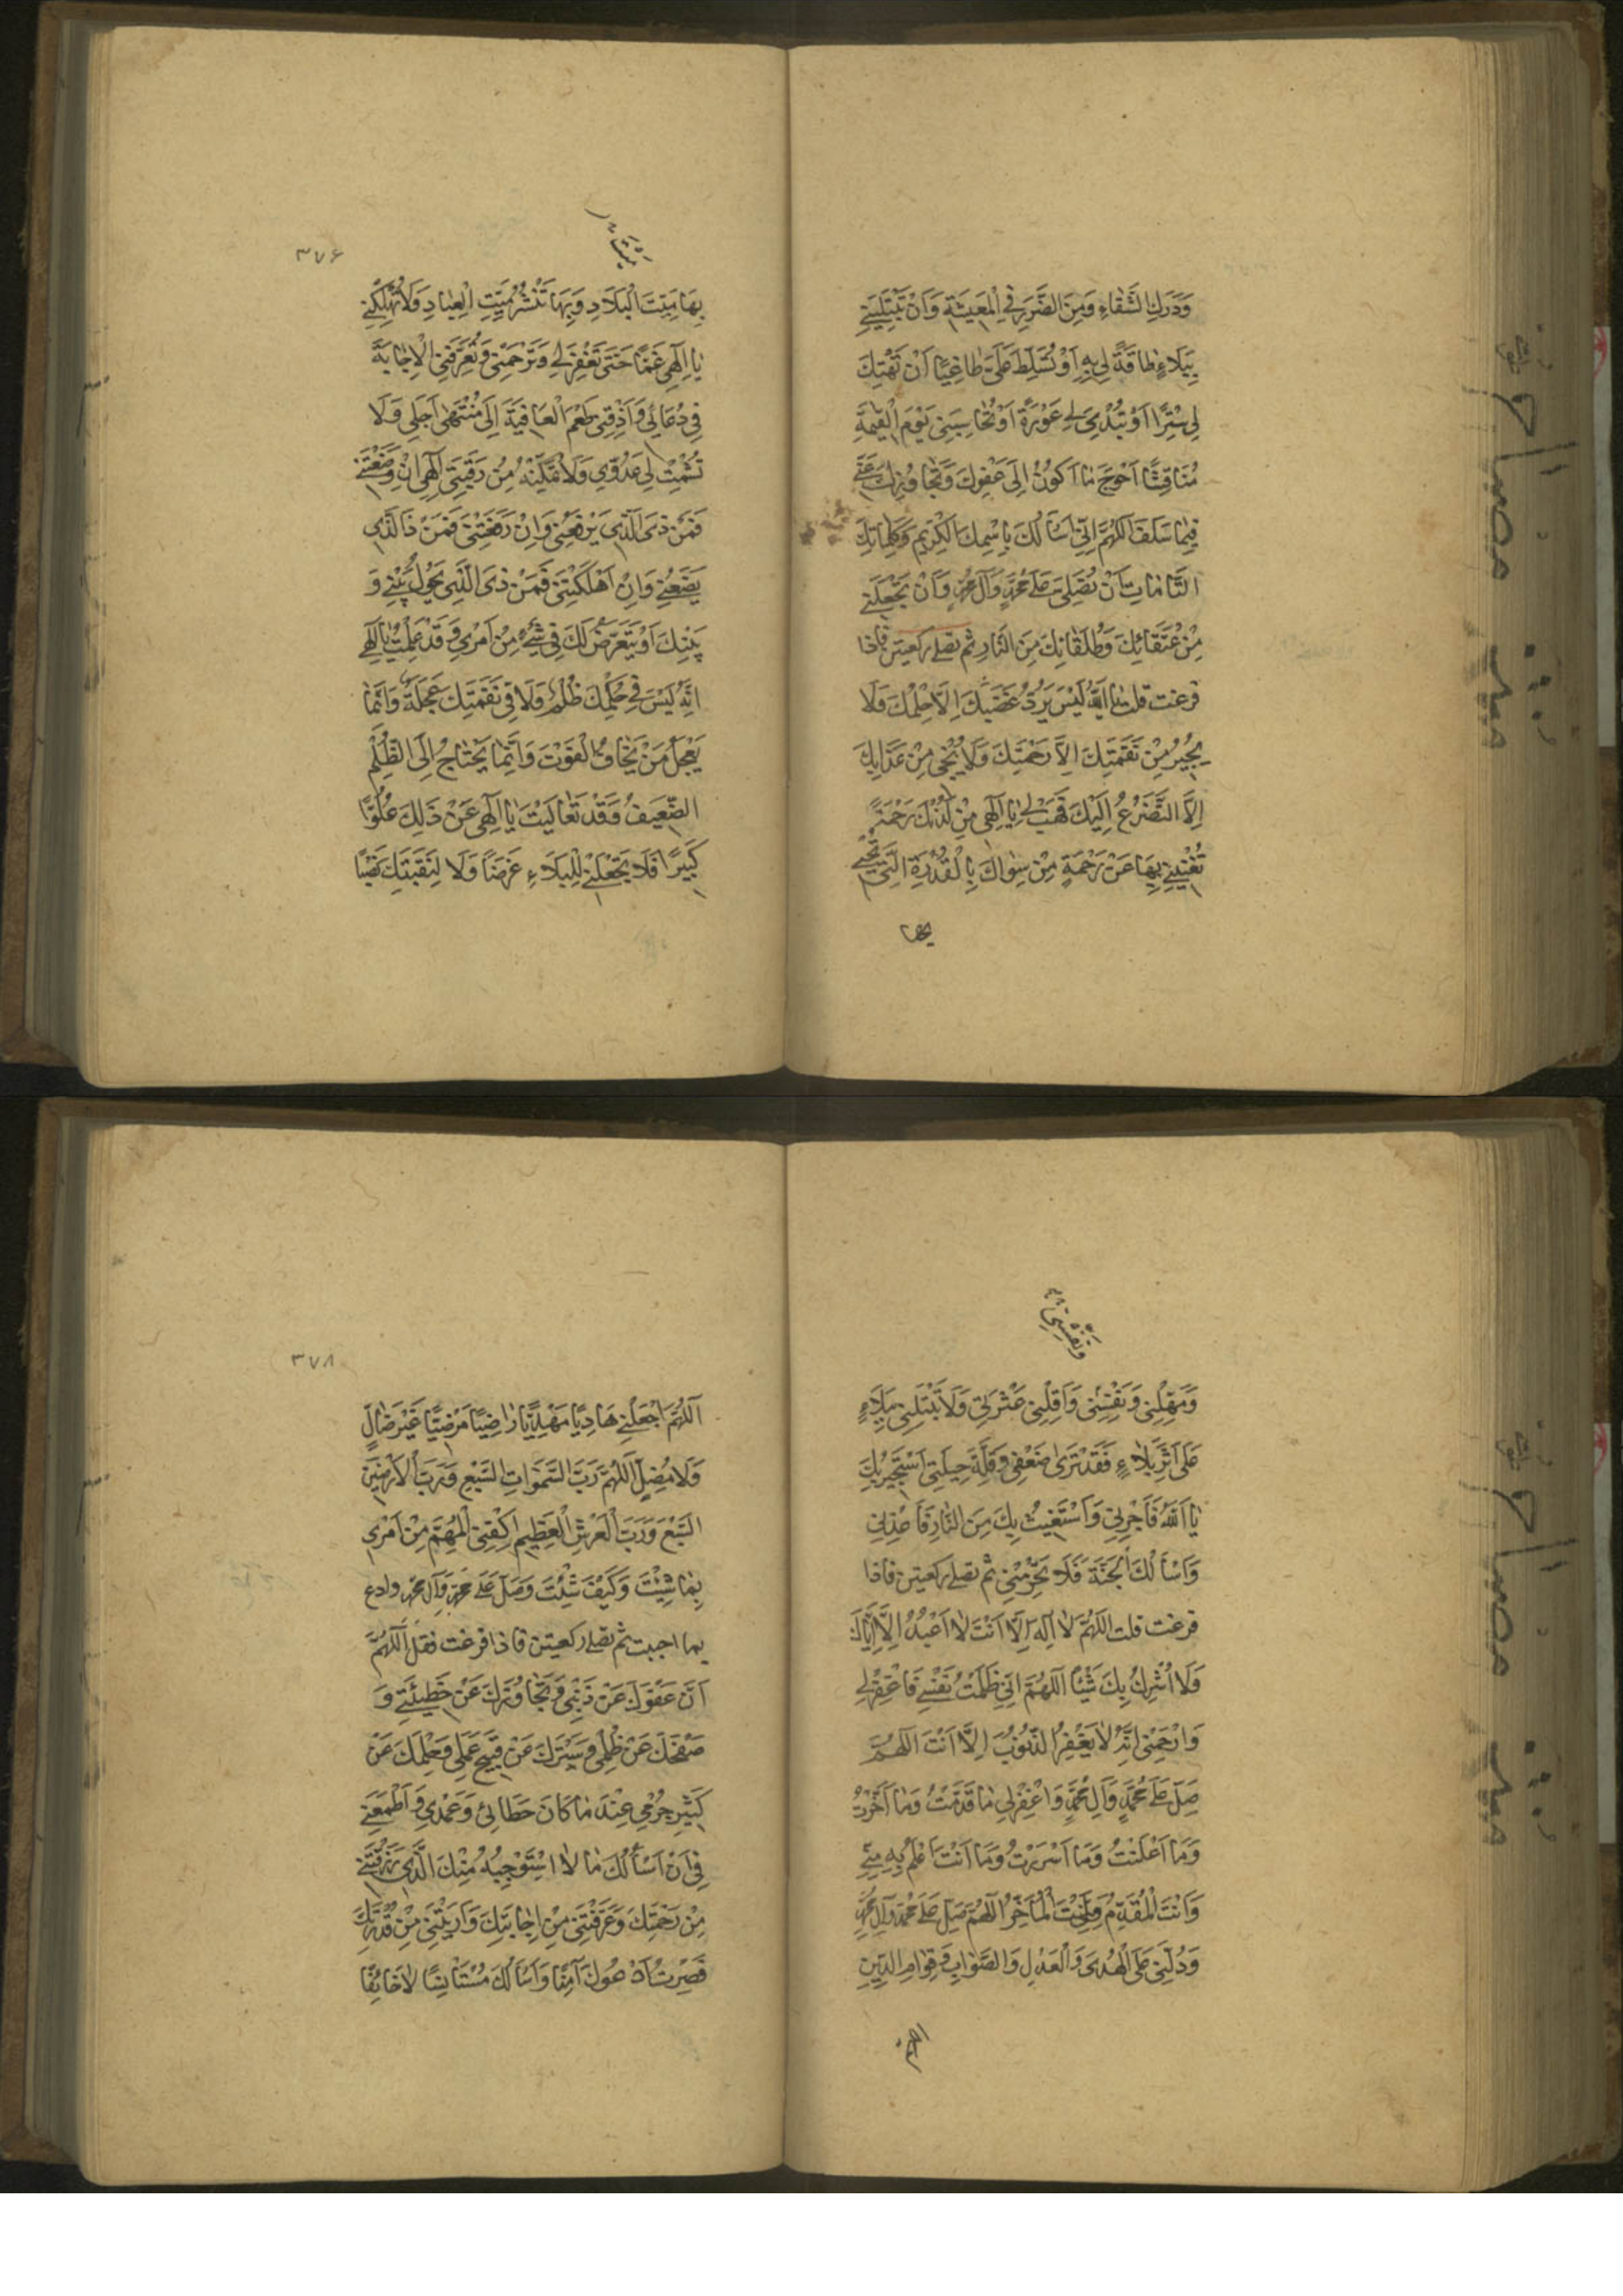 وَدَرَكِ الشَّقَاءِ وَمِنَ الضَّرَرِ فِي الْمَعِيشَةِ وَاَنْ تَبْتَلِيَنِي
بِبَلَاءٍ طَاقَةً لِي بِهِ اَوْ تُسَلِّطَ عَلَيَّ طَاغِيًا اَنْ تَهْتِكَ
لِي سِتْرًا اَوْ تُبْدِيَ لِي عَوْرَةً اَوْ تُحَاسِبَنِي يَوْمَ الْقِيٰمَةِ
مُنَاقِشًا اَحْوَجَ مَا اَكُونُ اِلَى عَفْوِكَ وَتَجَاوُزِكَ عَنِّي
فِيمَا سَلَفَ اَللّٰهُمَّ اِنِّي اَسْأَلُكَ بِاسْمِكَ الْكَرِيمِ وَكَلِمَاتِكَ
التَّامَّاتِ اَنْ تُصَلِّيَ عَلَى مُحَمَّدٍ وَآلِ مُحَمَّدٍ وَاَنْ تَجْعَلَنِي
مِنْ عُتَقَائِكَ وَطُلَقَائِكَ مِنَ النَّارِ ثم تصلى ركعتين فاذا
فرغت قلت يَا اَللّٰهُ لَيْسَ يَرُدُّ غَضَبَكَ اِلَّا حِلْمُكَ وَلَا
يُجِيرُ مِنْ نَقِمَتِكَ اِلَّا رَحْمَتُكَ وَلَا يُنْجِي مِنْ عَذَابِكَ
اِلَّا التَّضَرُّعُ اِلَيْكَ فَهَبْ لِي يَا اِلٰهِي مِنْ لَدُنْكَ رَحْمَةً
تُغْنِينِي بِهَا عَنْ رَحْمَةِ مِنْ سِوَاكَ بِالْقُدْرَةِ الَّتِي تُحْيِي
بها
٣٧۶
بِهَا مَيِّتَ الْبِلَادِ وَبِهَا تَنْشُرُ مَيِّتَ الْعِبَادِ وَلَا تُهْلِكْنِي
يَا اِلٰهِي غَمًّا حَتَّى تَغْفِرَ لِي وَتَرْحَمَنِي وَتُعَرِّفَنِي الْاِجَابَةَ
فِي دُعَائِي وَاَذِقْنِي طَعْمَ الْعَافِيَةَ اِلَى مُنْتَهَى اَجَلِي وَلَا
تُشْمِتْ لِي عَدُوِّي وَلَا تُمَكِّنْهُ مِنْ رَقَبَتِي اِلٰهِي اِنْ وَضَعْتَنِي
فَمَنْ ذَى الَّذِي يَرْفَعُنِي وَاِنْ رَفَعْتَنِي فَمَنْ ذَا الَّذِي
يَضَعُنِي وَاِنْ اَهْلَكْتَنِي فَمَنْ ذَى الَّذِي يَحُولُ بَيْنِي وَ
بَيْنِكَ اَوْ يَتَعَرَّضُ لَكَ فِي شَيْءٍ مِنْ اَمْرِي وَقَدْ عَلِمْتُ يَا اِلٰهِي
اَنَّهُ لَيْسَ فِي حُكْمِكَ ظُلْمٌ وَلَا فِي نَقِمَتِكَ عَجَلَةٌ وَاِنَّمَا
يَعْجَلُ مَنْ يَخَافُ الْفَوْتَ وَاِنَّمَا يَحْتَاجُ اِلَى الظُّلْمِ
الضَّعِيفُ وَقَدْ تَعَالَيْتَ يَا اِلٰهِي عَنْ ذَلِكَ عُلُوًّا
كَبِيرًا فَلَا تَجْعَلْنِي لِلْبَلَاءِ غَرَضًا وَلَا لِنَقِمَتِكَ نَصْبًا
وَمَهِّلْنِي وَنَفِّسْنِي وَاَقِلْنِي عَثْرَتِي وَلَا تَبْتَلِنِي بِبَلَاءٍ
عَلَى اَثَرِ بَلَاءٍ فَقَدْ تَرَى ضَعْفِي وَقِلَّةَ حِيلَتِي اَسْتَجِيرُ بِكَ
يَا اَللّٰهُ فَاَجِرْنِي وَاَسْتَغِيثُ بِكَ مِنَ النَّارِ فَاَعِذْنِي
وَاَسْأَلُكَ الْجَنَّةَ فَلَا تَحْرِمْنِي ثم تصلى ركعتين فاذا
فرغت قلت اَللّٰهُمَّ لَا اِلٰهَ اِلَّا اَنْتَ لَا اَعْبُدُ اِلَّا اِيَّاكَ
وَلَا اُشْرِكُ بِكَ شَيْئًا اَللّٰهُمَّ اِنِّي ظَلَمْتُ نَفْسِي فَاغْفِرْ لِي
وَارْحَمْنِي اِنَّهُ لَا يَغْفِرُ الذُّنُوبَ اِلَّا اَنْتَ اَللّٰهُمَّ
صَلِّ عَلَى مُحَمَّدٍ وَآلِ مُحَمَّدٍ وَاغْفِرْ لِي مَا قَدَّمْتُ وَمَا اَخَّرْتُ
وَمَا اَعْلَنْتُ وَمَا اَسْرَرْتُ وَمَا اَنْتَ اَعْلَمُ بِهِ مِنِّي
وَاَنْتَ الْمُقَدِّمُ وَاَنْتَ الْمُأَخِّرُ اَللّٰهُمَّ صَلِّ عَلَى مُحَمَّدٍ وَآلِ مُحَمَّدٍ
وَدُلَّنِي عَلَى الْهُدَى وَالْعَدْلِ وَالصَّوَابِ وَقِوَامِ الدِّينِ
اللهم
٣٧٨
اَللّٰهُمَّ اجْعَلْنِي هَادِيًا مَهْدِيًّا رَاضِيًا مَرْضِيًّا غَيْرَ ضَالٍّ
وَلَا مُضِلٍّ اَللّٰهُمَّ رَبَّ السَّمٰوَاتِ السَّبْعِ وَرَبَّ الْاَرَضِينَ
السَّبْعِ وَرَبَّ الْعَرْشِ الْعَظِيمِ اكْفِنِي الْمُهِمَّ مِنْ اَمْرِي
بِمَا شِئْتَ وَكَيْفَ شِئْتَ وَصَلِّ عَلَى مُحَمَّدٍ وَآلِ مُحَمَّدٍ وادع
بما احببت ثم تصلى ركعتين فاذا فرغت فقل اَللّٰهُمَّ
اِنَّ عَفْوَكَ عَنْ ذَنْبِي وَتَجَاوُزَكَ عَنْ خَطِيئَتِي وَ
صَفْحَكَ عَنْ ظُلْمِي وَسَتْرَكَ عَنْ قَبِيحِ عَمَلِي وَحِلْمَكَ عَنْ
كَثِيرِ جُرْمِي عِنْدَ مَا كَانَ خَطَائِي وَعَمْدِي وَاَطْمَعَنِي
فِي اَنْ اَسْأَلُكَ مَا لَا اَسْتَوْجِبُهُ مِنْكَ الَّذِي رَزَقْتَنِي
مِنْ رَحْمَتِكَ وَعَرَّفْتَنِي مِنْ اِجَابَتِكَ وَاَرَيْتَنِي مِنْ قُدْرَتِكَ
فَصِرْتُ اَدْعُوكَ آمِنًا وَاَسْأَلُكَ مُسْتَأْنِسًا لَا خَائِفًا